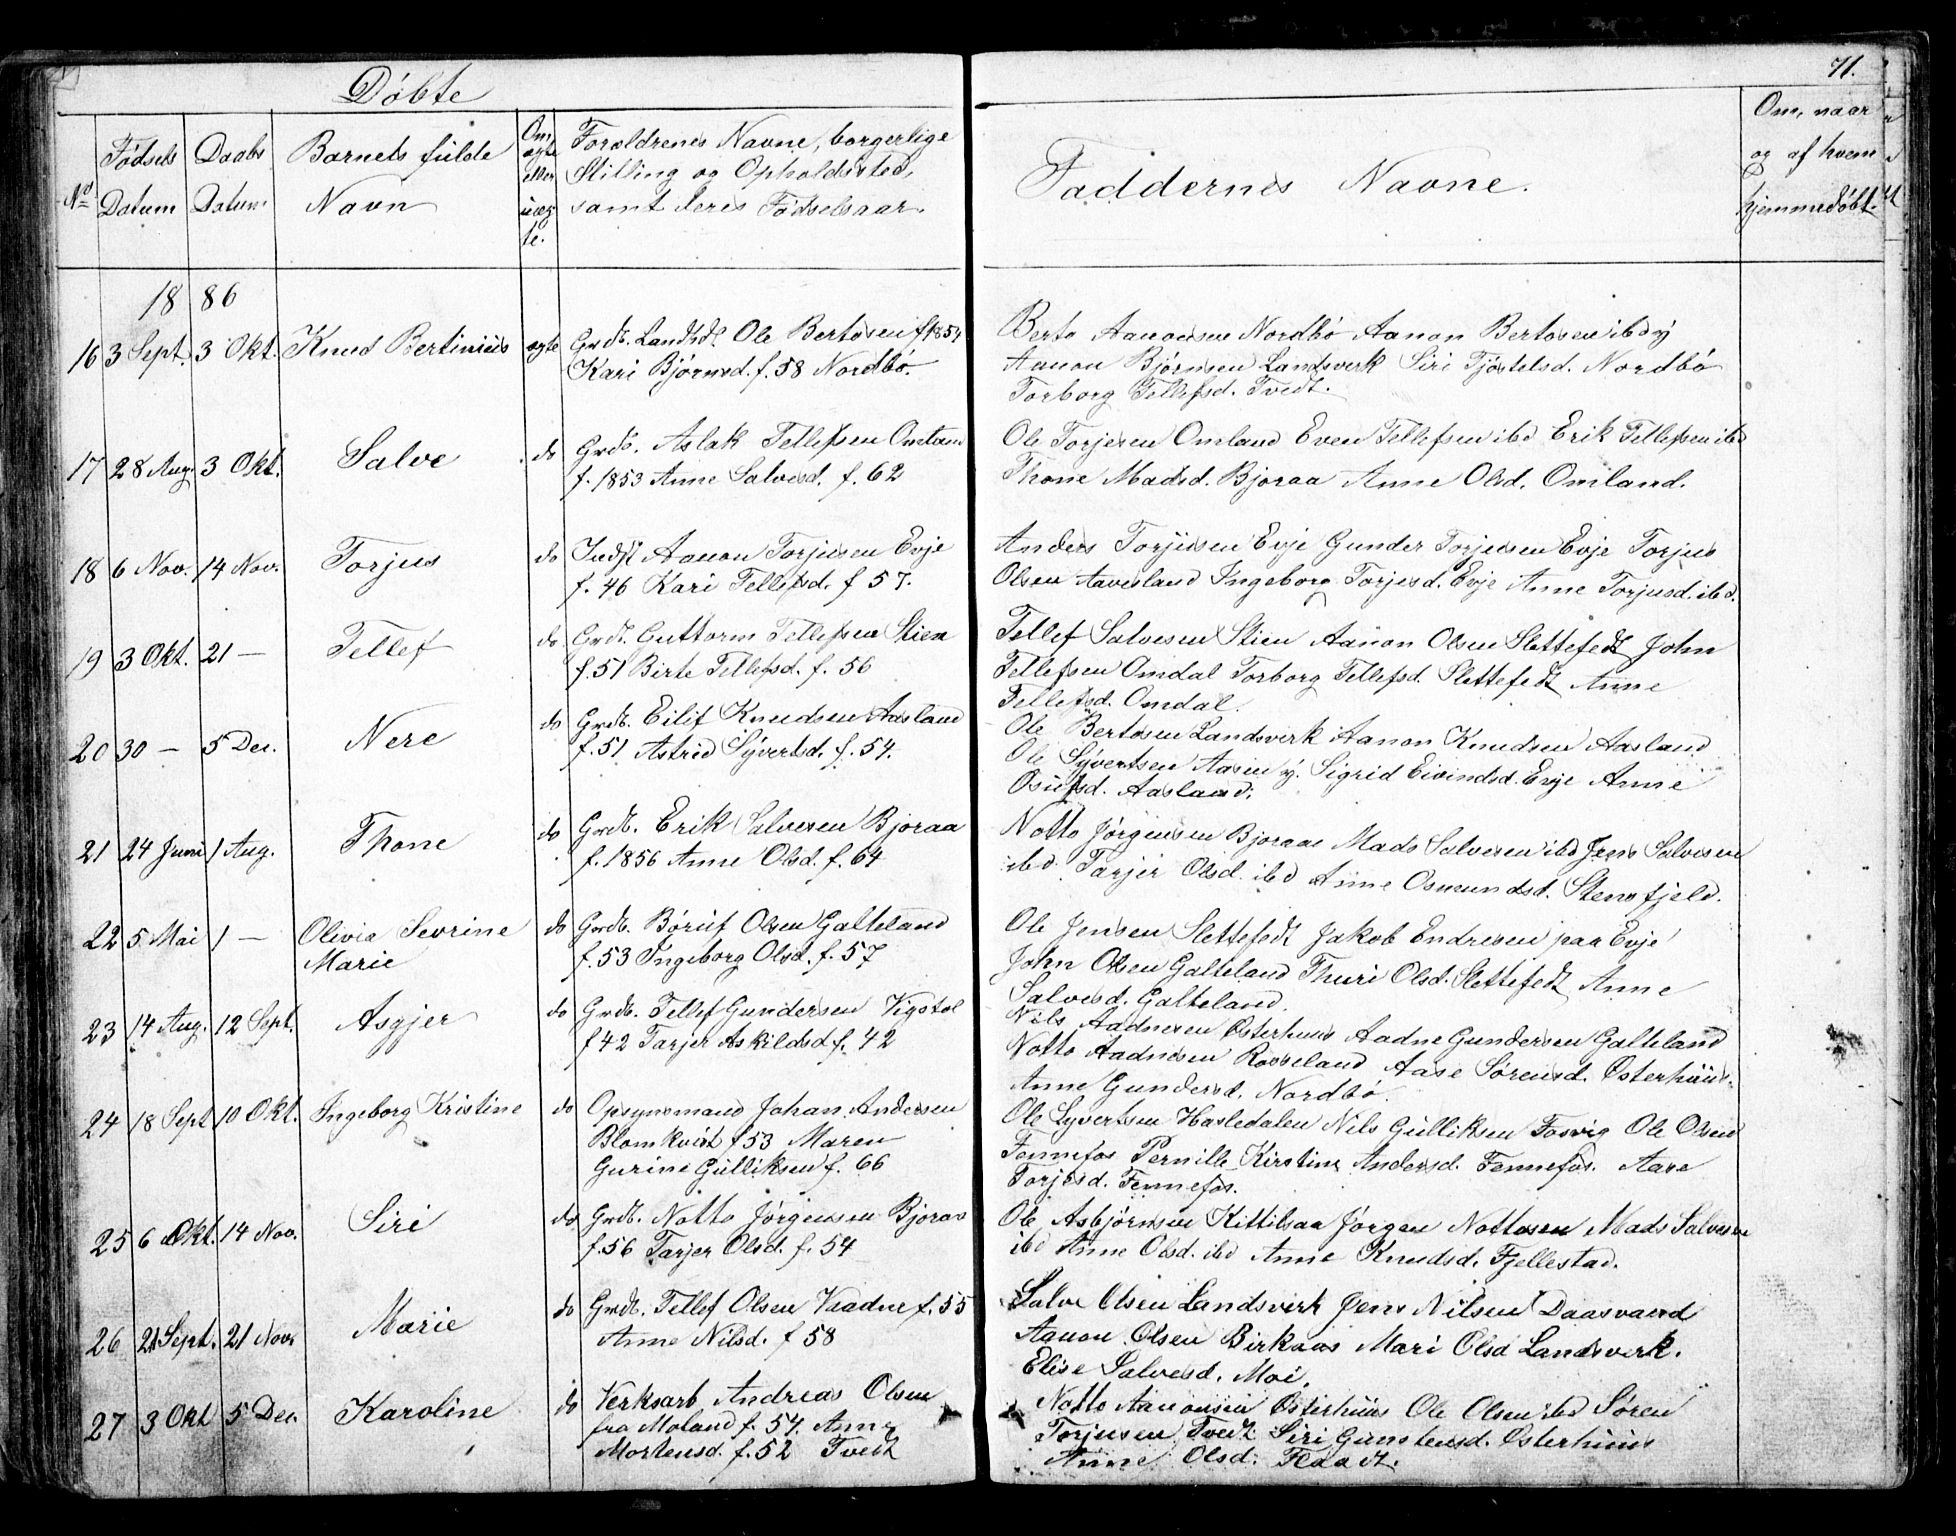 Døbte
Nº
Fødsels Datum
Daabs Datum
Barnets fulde Navn
Om ægte eller uæg te.
Forældrenes Navne, borgerlige
Stilling og Opholdssted,
samt deres Fødselsaar.
1886
16 3 Sept. 3 Okt. Knud Bertinius ægte Grdb. Landsdt Ole Bertosen f 1854
Kari Bjørnsd. f. 58 Nordbø.
17 28 Aug. 3 Okt. Salve do Grdb. Aslak Tellefsen Omland
f. 1853 Anne Salvesd. f. 62
18 6 Nov. 14 Nov. Torjus do Indst Aanon Torjusen Evje
f. 46 Kari Tellefsd. f 57.
19 3 Okt. 21 — Tellef do Grdb. Guttorm Tellefsen Stien
f. 51 Birte Tellefsd. f. 56
20 30 — 5 Dec. Nere do Grdb. Eilif Knudsen Aasland
f. 51 Astrid Syvertsd. f. 54.
21 24 Juni 1 Aug. Thone do Grdb. Erik Salvesen Bjoraa
f. 1856 Anne Olsd. f. 64
22 5 Mai 1 — Olivia Sevrine do Grdb. Børuf Olsen Galteland
Marie f. 53 Ingeborg Olsd. f. 57
23 14 Aug. 12 Sept. Asgjer do Grdb. Tellef Gundersen Vigstøl
f 42 Tarjer Askildsd f. 42
24 18 Sept 10 Okt. Ingeborg Kristine do Opsynsmand Johan Andersen
Blomkvist f 53 Maren
Gurine Gulliksen f. 66
25 6 Okt. 14 Nov. Siri do Grdb. Notto Jørgensen Bjoraa
f. 56 Tarjer Olsd. f. 54
26 21 Sept. 21 Nov. Marie do Grdb. Tellef Olsen Vaadne f. 55
Anne Nilsd. f 58
27 3 Okt 5 Dec. Karoline do Verksarb Andreas Olsen
fra Moland f. 54. Anne
Mortensd. f. 52 Tvedt
71.
Faddernes Navne.
Om, naar
og af hvem
hjemmedøbt.
Berto Aanonsen Nordbø Aanon Bertosen ibd
Aanon Bjørnsen Landsverk Siri Tjøstelsd. Nordbø
Torborg Tellefsd. Tvedt.
Ole Torjesen Omland Even Tellefsen ibd Erik Tellefsen ibd
Thone Madsd. Bjoraa Anne Olsd. Omland.
Anders Torjusen Evje Gunder Torjusen Evje Torjus
Olsen Aavesland Ingeborg Torjusd. Evje Anne Torjusd. ibd.
Tellef Salvesen Stien Aanon Olsen Slettefedt John
Tellefsen Omdal Torborg Tellefsd. Slettefedt Anne
Tellefsd. Omdal.
Ole Bertosen Landsverk Aanon Knudsen Aasland
Ole Syvertsen Aasen y. Sigrid Eivindsd. Evje Anne
Osufsd. Aasland.
Notto Jørgensen Bjoraa Mads Salvesen ibd Jens Salvesen
ibd Tarjer Olsd. ibd Anne Osmundsd. Stensfjeld.
Ole Jensen Slettefedt Jakob Endresen paa Evje
John Olsen Galteland Thuri Olsd. Slettefedt Anne
Salvesd. Galteland.
Nils Aadnesen Østerhuus Aadne Gundersen Galteland
Notto Aadnesen Rosseland Aase Sørensd. Østerhuus
Anne Gundersd. Nordbø.
Ole Syvertsen Hasledalen Nils Gulliksen Fosvig Ole Olsen
Fennefos Pernille Kirstine Andersd. Fennefos. Aase
Torjesd. Fennefos.
Ole Asbjørnsen Kittilsaa Jørgen Nottosen Mads Salvesen
ibd Anne Olsd. ibd Anne Knudsd. Fjellestad.
Salve Olsen Landsverk Jens Nilsen Daasvand
Aanon Olsen Birkaas Mari Olsd Landsverk.
Elise Salvesd. Moi.
Notto Aanonsen Østerhuus Ole Olsen ibd Søren
Torjusen Tvedt Siri Gunstensd. Østerhuus
Anne Olsd. Flaadt.